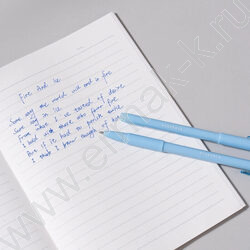 Fire And Ice
Some say the world will end in fire
Some say in ice
From what I've tasted of desire
I hold with those who favor fire
But if it had to perish twice
I think I know enough of hate
www.ermak-k.ru